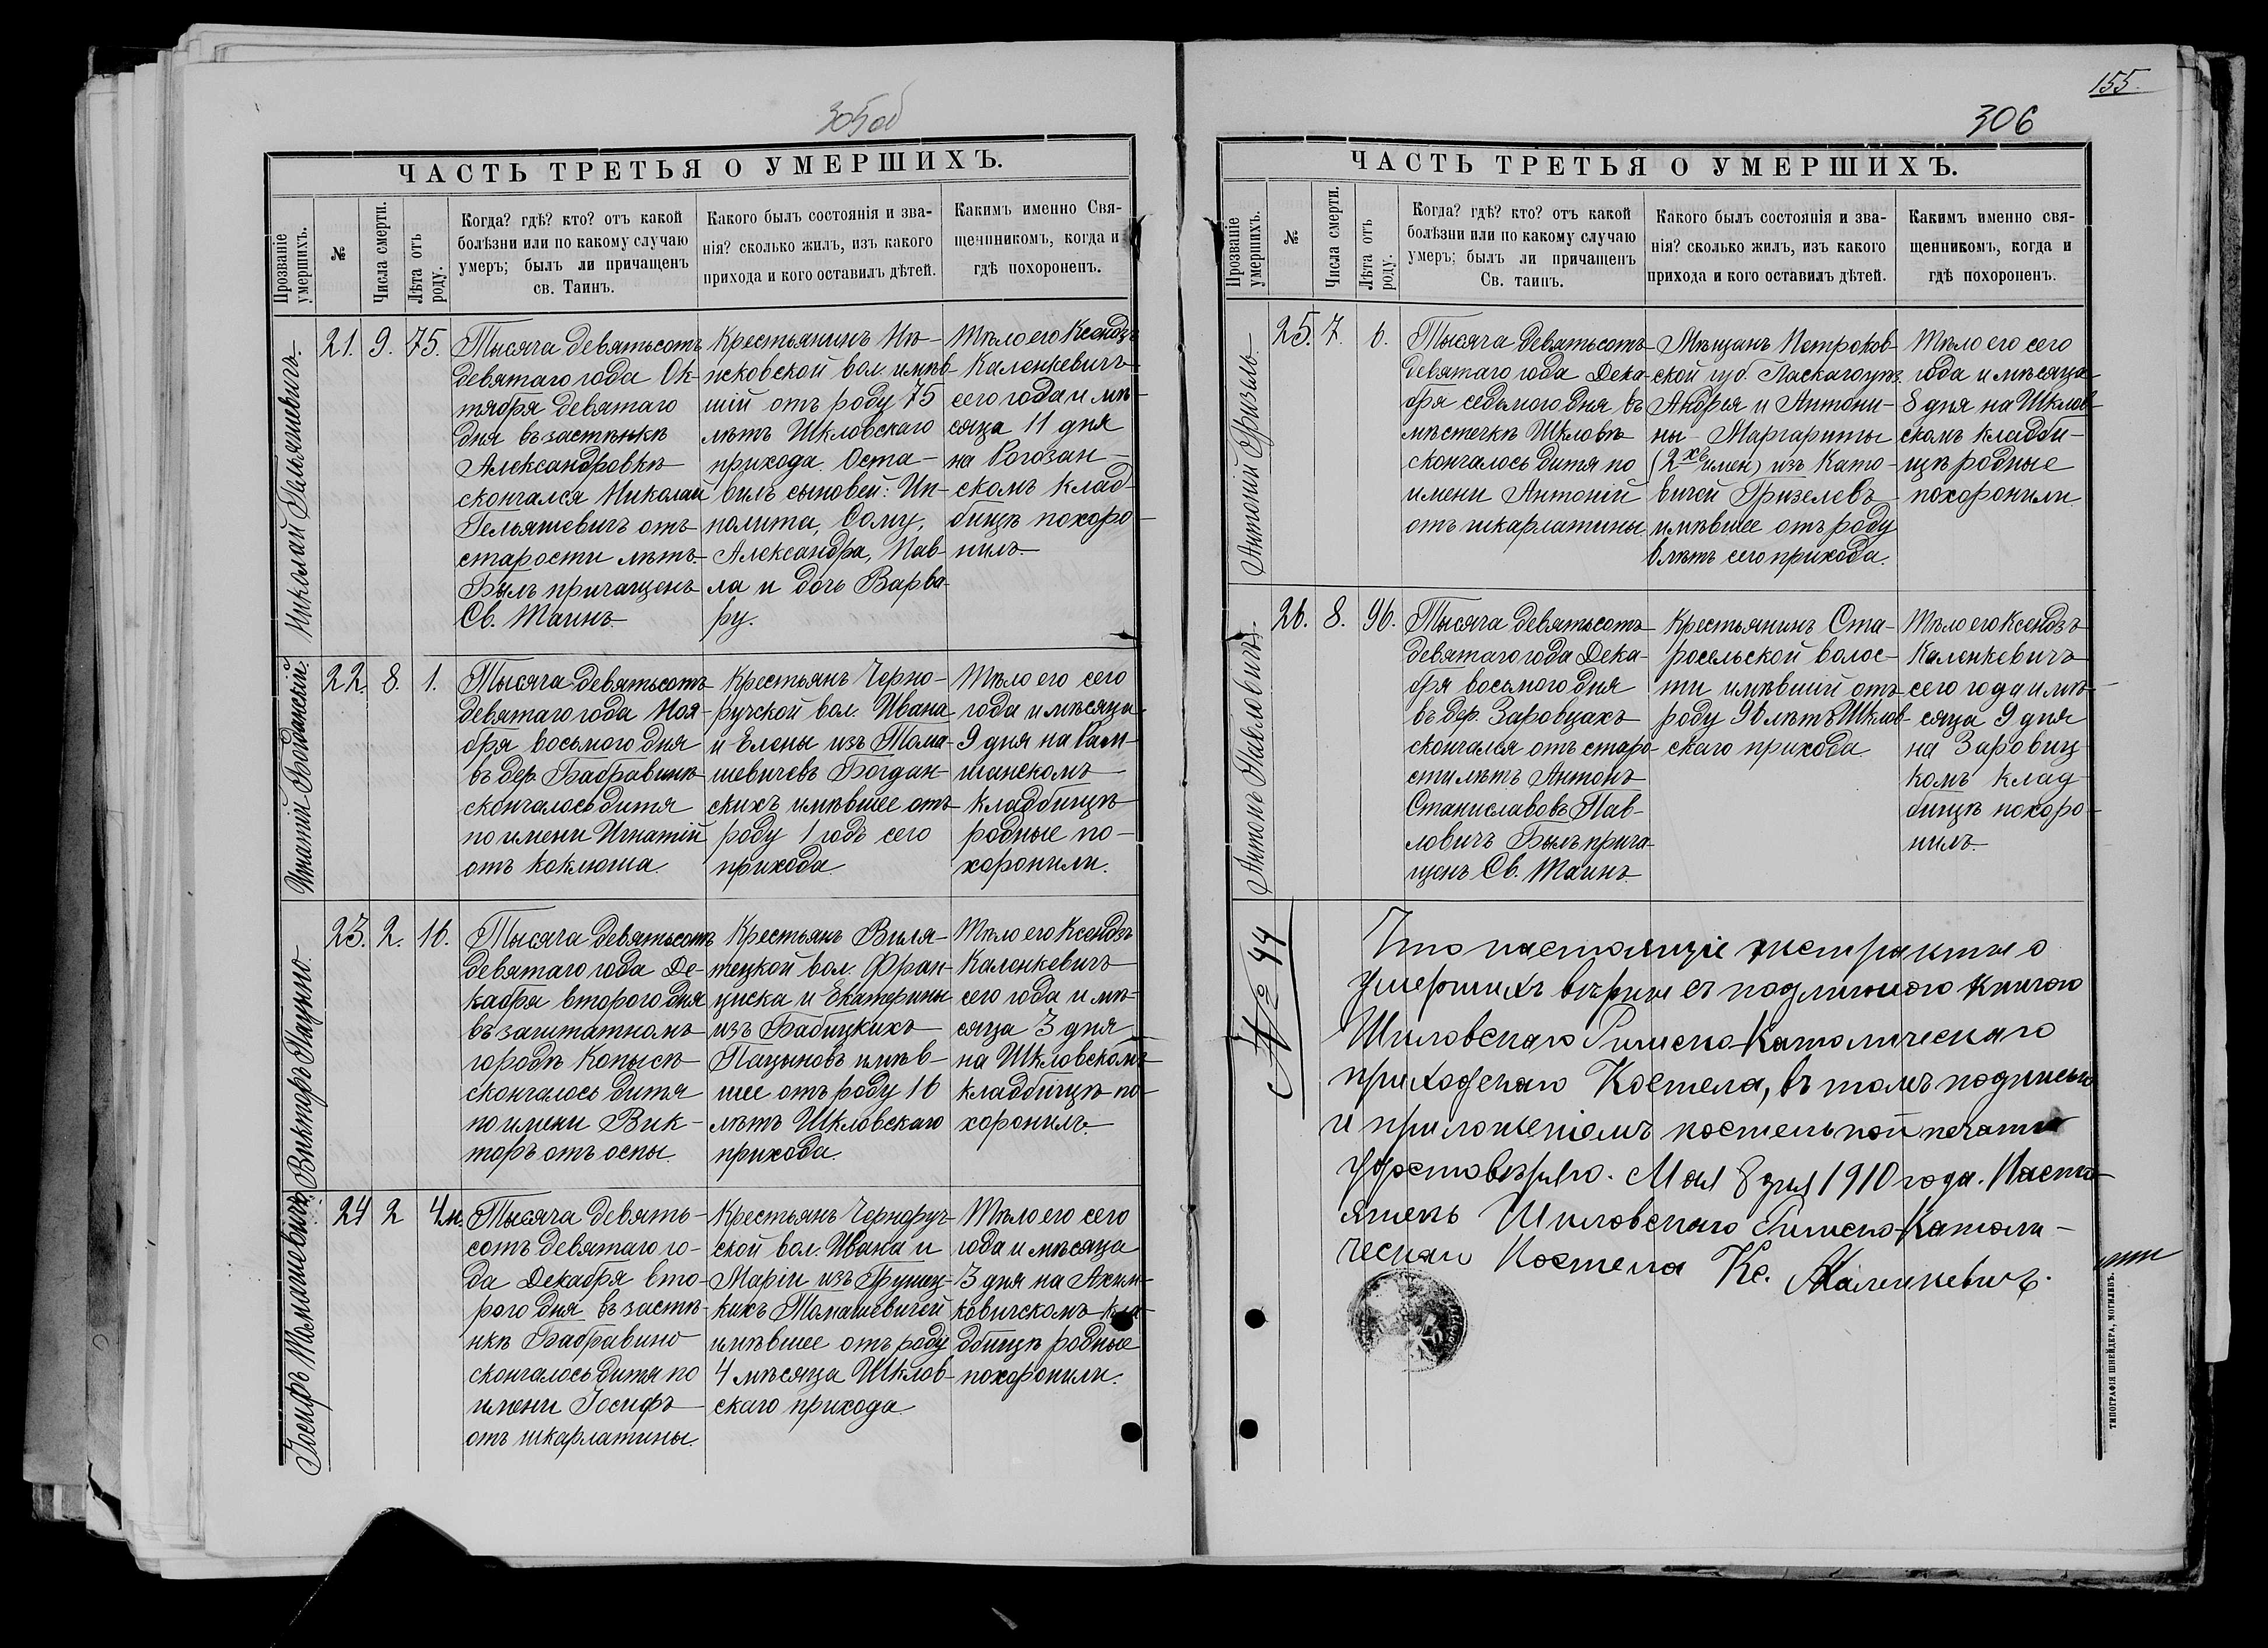 305об
ЧАСТЬ ТРЕТЬЯ О УМЕРШИХЪ.
Прозваніе умершихъ.
№
Числа смерти.
Лѣта отъ роду.
Когда? гдѣ? кто? отъ какой
болѣзни или по какому случаю
умеръ; былъ ли причащенъ
св. Таинъ.
Какого былъ состоянія и зва-
нія? сколько жилъ, изъ какого
прихода и кого оставилъ дѣтей.
Какимъ именно Свя-
щенникомъ, когда и
гдѣ похороненъ.
Николай Гельяшевичъ.
21. 9. 75.
Тысяча девятьсотъ
девятаго года Ок-
тября девятаго
дня въ застѣнкѣ
Александровкѣ
скончался Николай
Гельяшевичъ отъ
старости лѣтъ.
Былъ причащенъ
Св. Таинъ.
Крестьянинъ
вол. имѣв-
шій отъ роду 75
лѣтъ Шкловскаго
прихода. Оста-
вилъ сыновей: Ип-
полита, Ѳому,
Александра, Пав-
ла и дочь Варва-
ру.
Тѣло его Ксендзъ
Каленкевичъ
сего года и мѣ-
сяца 11 дня
на Рогозан-
скомъ клад-
бищѣ похоро-
нилъ
Игнатій Богданскій.
22. 8. 1.
Тысяча девятьсотъ
девятаго года Ноя-
бря восьмого дня
въ дер. Бабравинѣ
скончалось дитя
по имени Игнатій
отъ коклюша.
Крестьянъ Черно-
ручской вол. Ивана
и Елены изъ Тома-
шевичевъ Богдан-
скихъ имѣвшее отъ
роду 1 годъ сего
прихода
Тѣло его сего
года и мѣсяца
9 дня на Рам-
шанскомъ
кладбищѣ
родные по-
хоронили.
Викторъ Пацыно.
23. 2. 16.
Тысяча девятьсотъ
девятаго года Де-
кабря второго дня
въ заштатномъ
городѣ Копысѣ
скончалось дитя
по имени Вик-
торъ отъ оспы.
Крестьянъ Виля-
тецкой вол. Фран-
циска и Екатерины
изъ Бабицкихъ
Пацыновъ имѣв-
шее отъ роду 16
лѣтъ Шкловскаго
прихода.
Тѣло его Ксендзъ
Каленкевичъ
сего года и мѣ-
сяца 3 дня
на Шкловскомъ
кладбищѣ по-
хоронилъ.
Іосифъ Томашевичъ.
24 2 4м.
Тысяча девять-
сотъ девятаго го-
да Декабря вто-
рого дня въ застѣ-
нкѣ Бабравино
скончалось дитя по
имени Іосифъ
отъ шкарлатины.
Крестьянъ Черноруч-
ской вол. Ивана и
Маріи изъ Грушец-
кихъ Томашевичей
имѣвшее отъ роду
4 мѣсяца Шклов-
скаго прихода.
Тѣло его сего
года и мѣсяца
3 дня на Аким-
ковичскомъ кла-
дбищѣ родные
похоронили.
155.
306
ЧАСТЬ ТРЕТЬЯ О УМЕРШИХЪ.
Прозваніе умершихъ.
№
Числа смерти.
Лѣта отъ роду.
Когда? гдѣ? кто? отъ какой
болѣзни или по какому случаю
умеръ; былъ ли причащенъ
Св. таинъ.
Какого былъ состоянія и зва-
нія? сколько жилъ, изъ какого
прихода и кого оставилъ дѣтей.
Какимъ именно свя-
щенникомъ, когда и
гдѣ похороненъ.
Антоній Гризель.
25. 7. 6.
Тысяча девятьсотъ
девятаго года Дека-
бря седьмого дня въ
мѣстечкѣ Шкловѣ
скончалось дитя по
имени Антоній
отъ шкарлатины
Мѣщанъ Петроков-
ской губ. Ласкаго уѣз.
Андрея и Антони-
ны-Маргариты
(2хъ имен) изъ Като-
вичей Гризелевъ
имѣвшее отъ роду
6 лѣтъ сего прихода.
Тѣло его сего
года и мѣсяца
8 дня на Шклов-
скомъ кладби-
щѣ родные
похоронили
Антонъ Павловичъ.
26. 8. 96.
Тысяча девятьсотъ
девятаго года Дека-
бря восьмого дня
въ дер. Заровцахъ
скончался отъ старо-
сти лѣтъ Антонъ
Станиславовъ Пав-
ловичъ Былъ прича-
щенъ Св. Таинъ.
Крестьянинъ Ста-
росельской волос-
ти имѣвшій отъ
роду 96 лѣтъ Шклов-
скаго прихода
Тѣло его Ксендзъ
Каленкевичъ
сего года и мѣ-
сяца 9 дня
на Заровиц-
комъ клад-
бищѣ похоро-
нилъ.
№ 44
Что настоящіе экстракты о
умершихъ вѣрны съ подлинною книгою
Шкловскаго Римско-Католическаго
приходскаго Костела, въ томъ подписью
и приложеніемъ костельной печати
удостовѣряю. Мая 8 дня 1910 года. Насто-
ятель Шкловскаго Римско-Католи-
ческаго Костела Кс. Каленкевичъ.
ТИПОГРАФІЯ ШНЕЙДЕРА, МОГИЛЕВЪ.